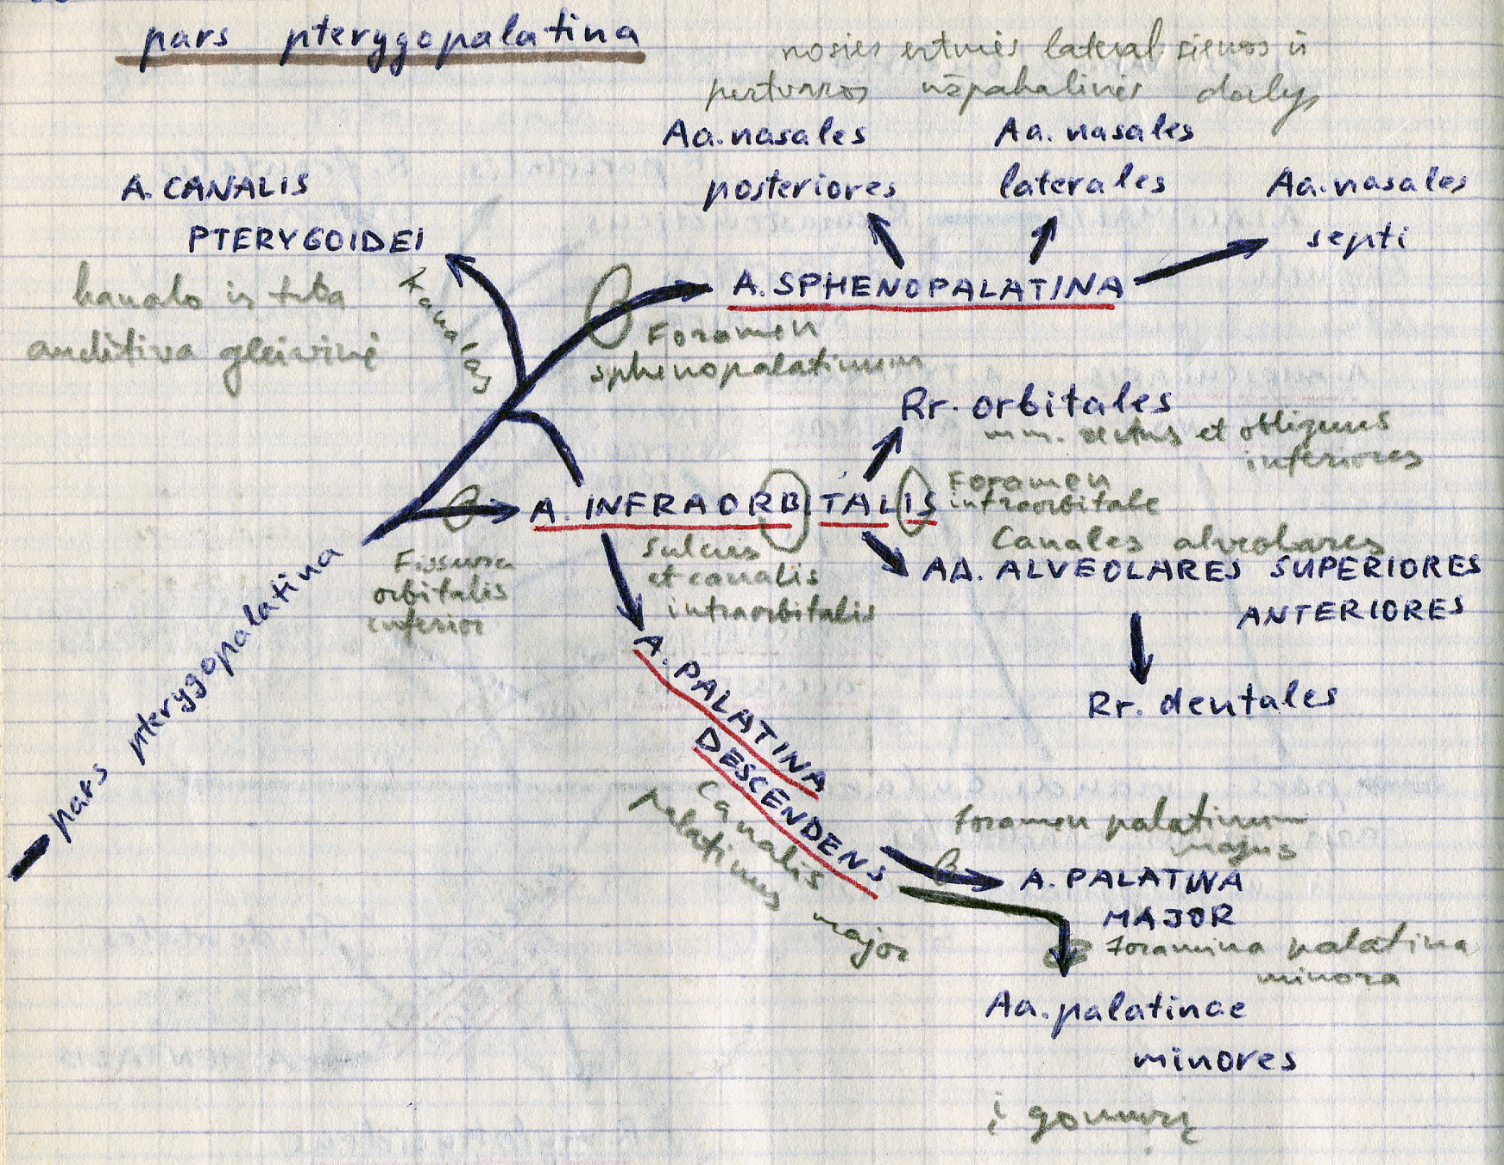 pars pterygopalatina
nosies ertmės lateral sienos ir
pertvaros užpakalinės dalys
Aa. nasales
posteriores
Aa. nasales
laterales
Aa. nasales
septi
A. CANALIS
PTERYGOIDEI
kanalo ir tuba
auditiva gleivinė
Kanalas
A. SPHENOPALATINA
Foramen
sphenopalatinum
Rr. orbitales
mm. rectus et obliquus
inferiores
A. INFRAORBITALIS
Foramen
infraorbitale
Fissura
orbitalis
inferior
Sulcus
et canalis
infraorbitalis
Canales alveolares
AA. ALVEOLARES SUPERIORES
ANTERIORES
Rr. dentales
pars pterygopalatina
A. PALATINA
DESCENDENS
Canalis
palatinus major
foramen palatinum
majus
A. PALATINA
MAJOR
foramina palatina
minora
Aa. palatinae
minores
į gomurį